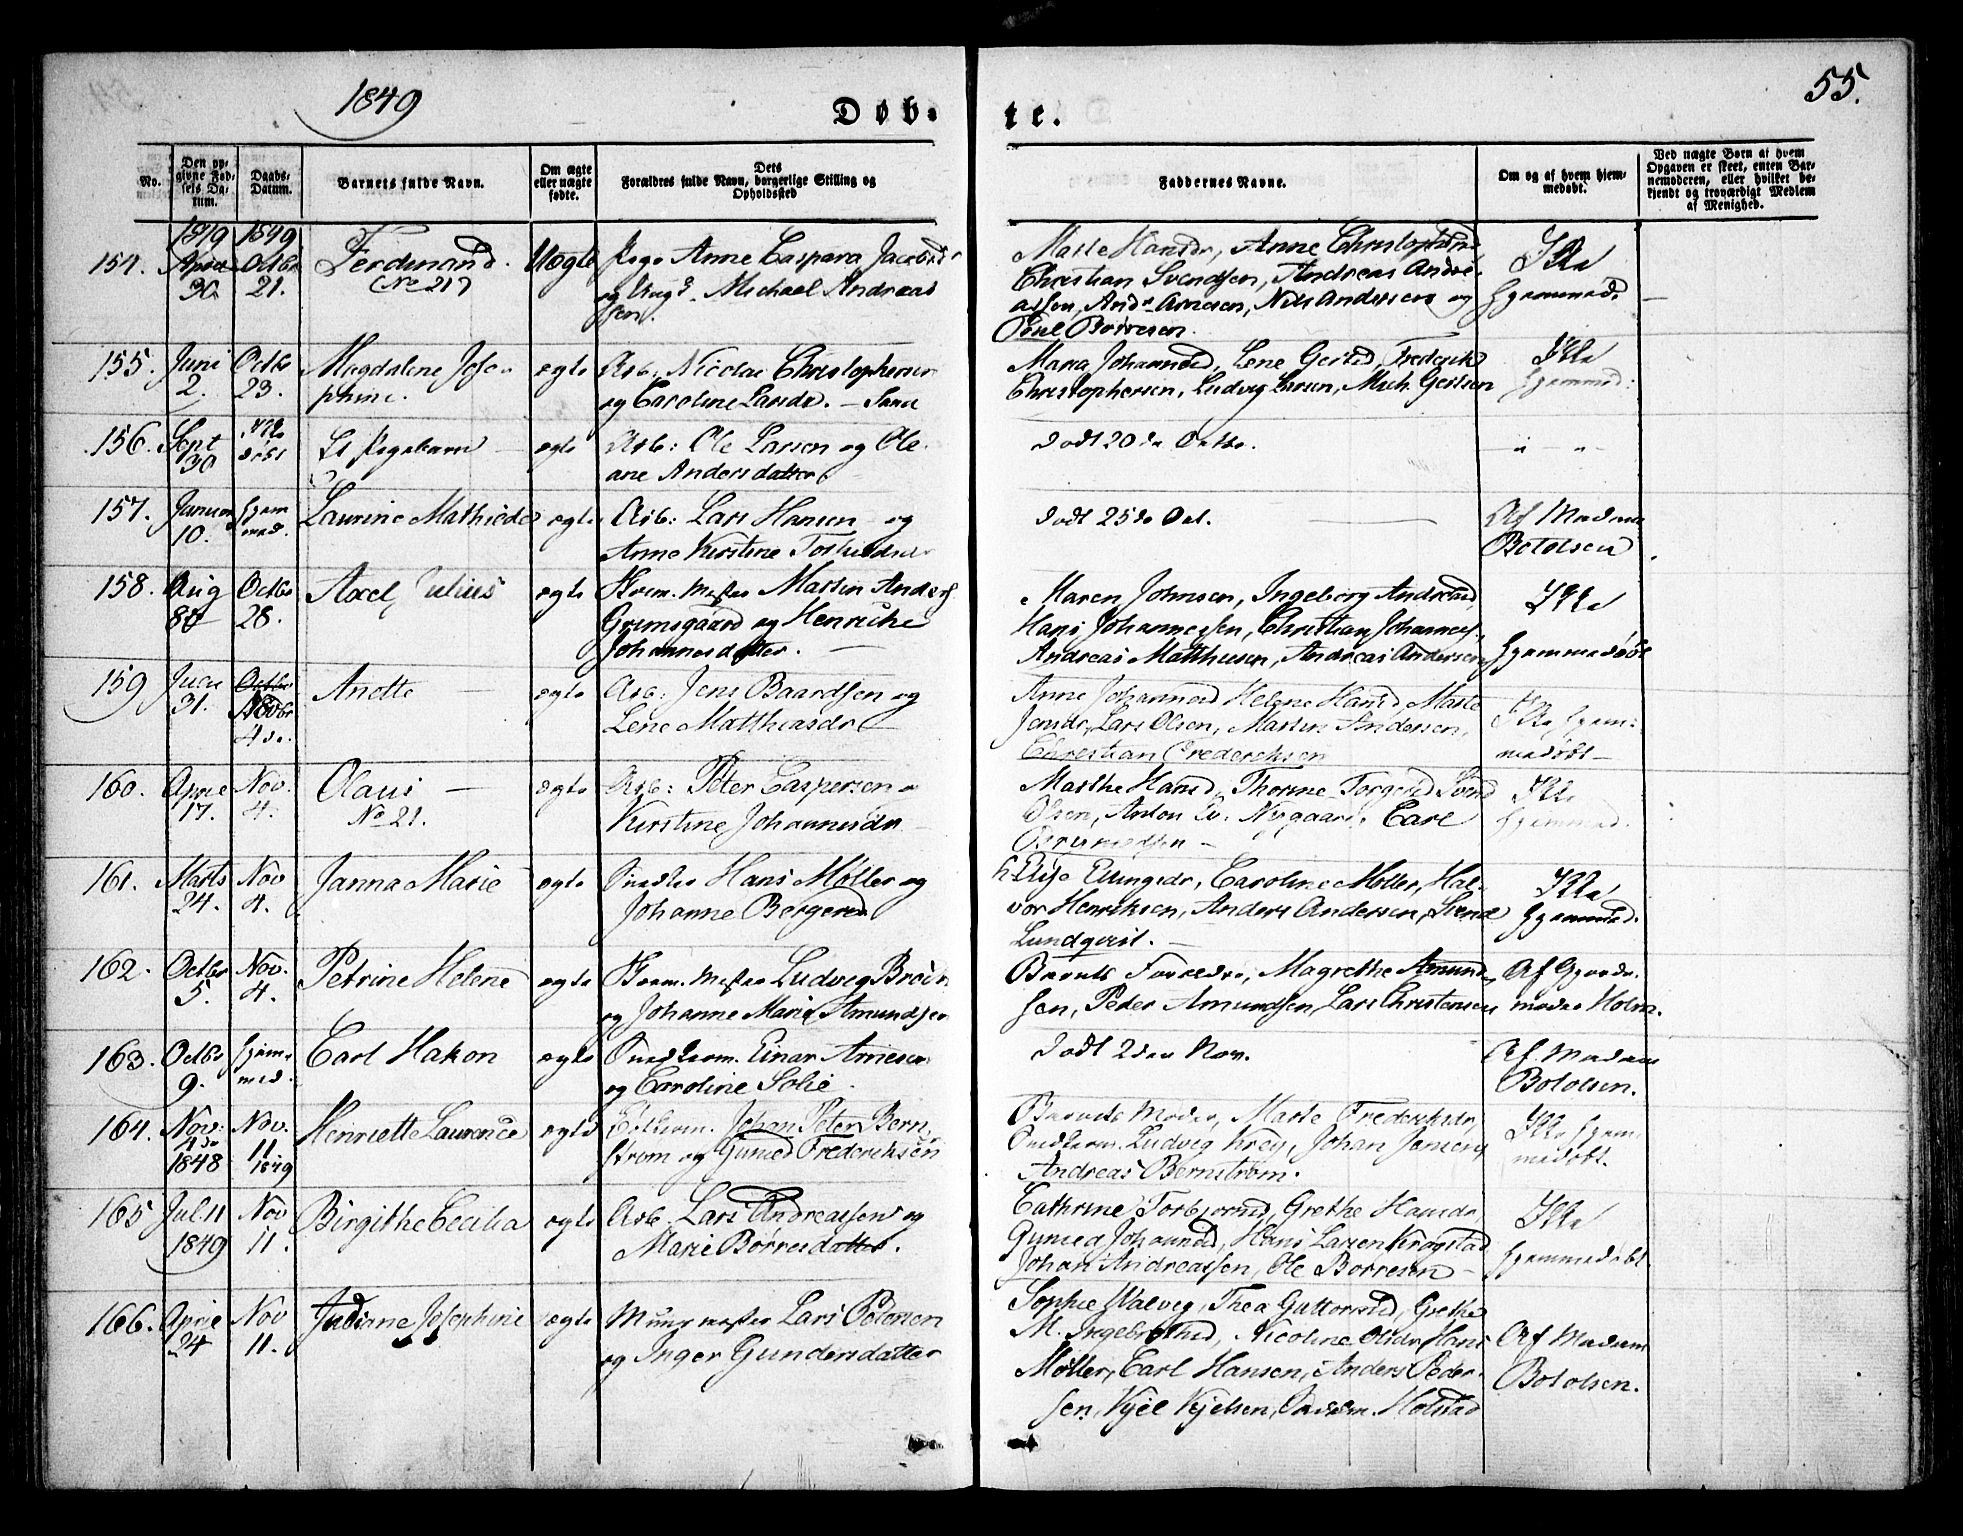 1849
Døb-
te.
55.
No.
Den op-
givne Fød-
sels Da-
tum.
Daabs-
Datum.
Barnets fulde Navn.
Om ægte
eller uægte
fødte.
Dets
Forældres fulde Navn, borgerlige Stilling og
Opholdssted
Faddernes Navne.
Om og af hvem hjem-
medøbt.
Ved uægte Børn af hvem
Opgaven er skeet, enten Bar-
nemoderen, eller hvilket be-
kjendt og troværdigt Medlem
af Menighed.
1849 1849
154. April 30. Octbr 21.
Ferdinand.
(No 21)
Uægte
Pige Anne Caspara Jacobsdr
og Ungk. Michael Andreas
sen.
Marte Hansdr, Anne Christophersd
Christian Svendsen, Andreas Andre-
assen, Ands Arnesen, Nils Andersen og
Poul Børresen.
Ikke
hjemmed.
155. Juni 2. Octbr 23.
Magdalene Jose-
phine.
ægte
Arb: Nicolai Christophersen
og Caroline Larsdr.
Maria Johannesd, Lene Gertsd, Frederik
Christophersen, Ludvig Larsen, Mich. Gertsen
Ikke
hjemmed:
156. Sept 30 Ikke
døbt
Et Pigebarn
ægte
Arb: Ole Larsen og Ole-
ane Andersdatter
Død 20de Octbr.
157. Januar 10. hjem
med.
Laurine Mathilde
ægte
Arb: Lars Hansen og
Anne Kirstine
død 25de Oct.
Af Madam
Bololsen
158. Aug Octbr 28.
Axel Julius
ægte
Martin Anders
Grimsgaard og Henrikke
Johannesdatter.
Maren Johnsen, Ingeborg Andreasd
Hans Johannessen, Christian Johannes.
Andreas Matthiesen, Andreas Andersen
Ikke
hjemmedøbt
159 31. Octbr
Novbr
4de.
Anette
ægte
Arb: Jens Baardsen og
Lene Matthiasdr
Anne Johannesd Helene Hansd, Marte
Jensdr, Lars Olsen, Martin Andersen,
Christian Frederiksen
Ikke hjem-
medøbt
160. April 17. Nov. 4.
Olaus
No 21.
ægte
Arb: Peter Caspersen og
Kirstine Johannesdr
Marthe Hansd, Thorine Torgersd Svend
Olsen, Anton Nygaard, Carl
Ikke
hjemmed.
161. Marts 24. Nov 4.
Janna Marie
ægte
Snedker Hans Møller og
Johanne Bergersd
Ellingsdr, Caroline Møller, Hal-
vor Henriksen, Anders Andersen, Svend
Lundqvist.
Ikke
hjemmed.
162. Octbr 5. Nov. 4.
Petrine Helene
ægte
Ludvig Bruun
og Johanne Marie Amundsen
Barnets Forældre, Magrethe Amund-
sen, Peder Amundsen, Lars Christensen
Af Gjorde-
moder Holm.
163. Octbr 9. hjem-
med.
Carl Hakon
ægte
Einar Arnesen
og Caroline Solie.
Død 2den Nov.
Af Madam
Bololsen.
164. Nov: 4de
1848 Nov. 11
1849
Henriette Laurence
ægte
Johan Peter Bern-
strøm og Gunild Frederiksen
Barnets Moder, Marte Frederiksdr,
Ludvig Krey, Johan Jensen,
Andreas Bernstrøm.
Ikke hjem-
medøbt.
165 Jul. 11
1849 Nov 11.
Birgithe Cecilia
ægte
Arb. Lars Andreassen og
Marie Børresdatter.
Cathrine Torbjørnsd, Grethe Hansdr,
Gunild Johannesd, Hans Larsen Krogstad
Johan Andreassen, Ole Børresen
Ikke
hjemmedøbt
166. April 24 Nov 11.
Juliane Josephine
ægte
Muurmester Lars Pedersen
og Inger Gundersdatter
Sophie Walvig, Thea Guttormsd, Grethe
M. Ingebrethsd, Nicoline Olsdr, Hans
Møller, Carl Hansen, Anders Peder-
sen, Kjel Kjelsen, Holstad
Af Madam
Bololsen.